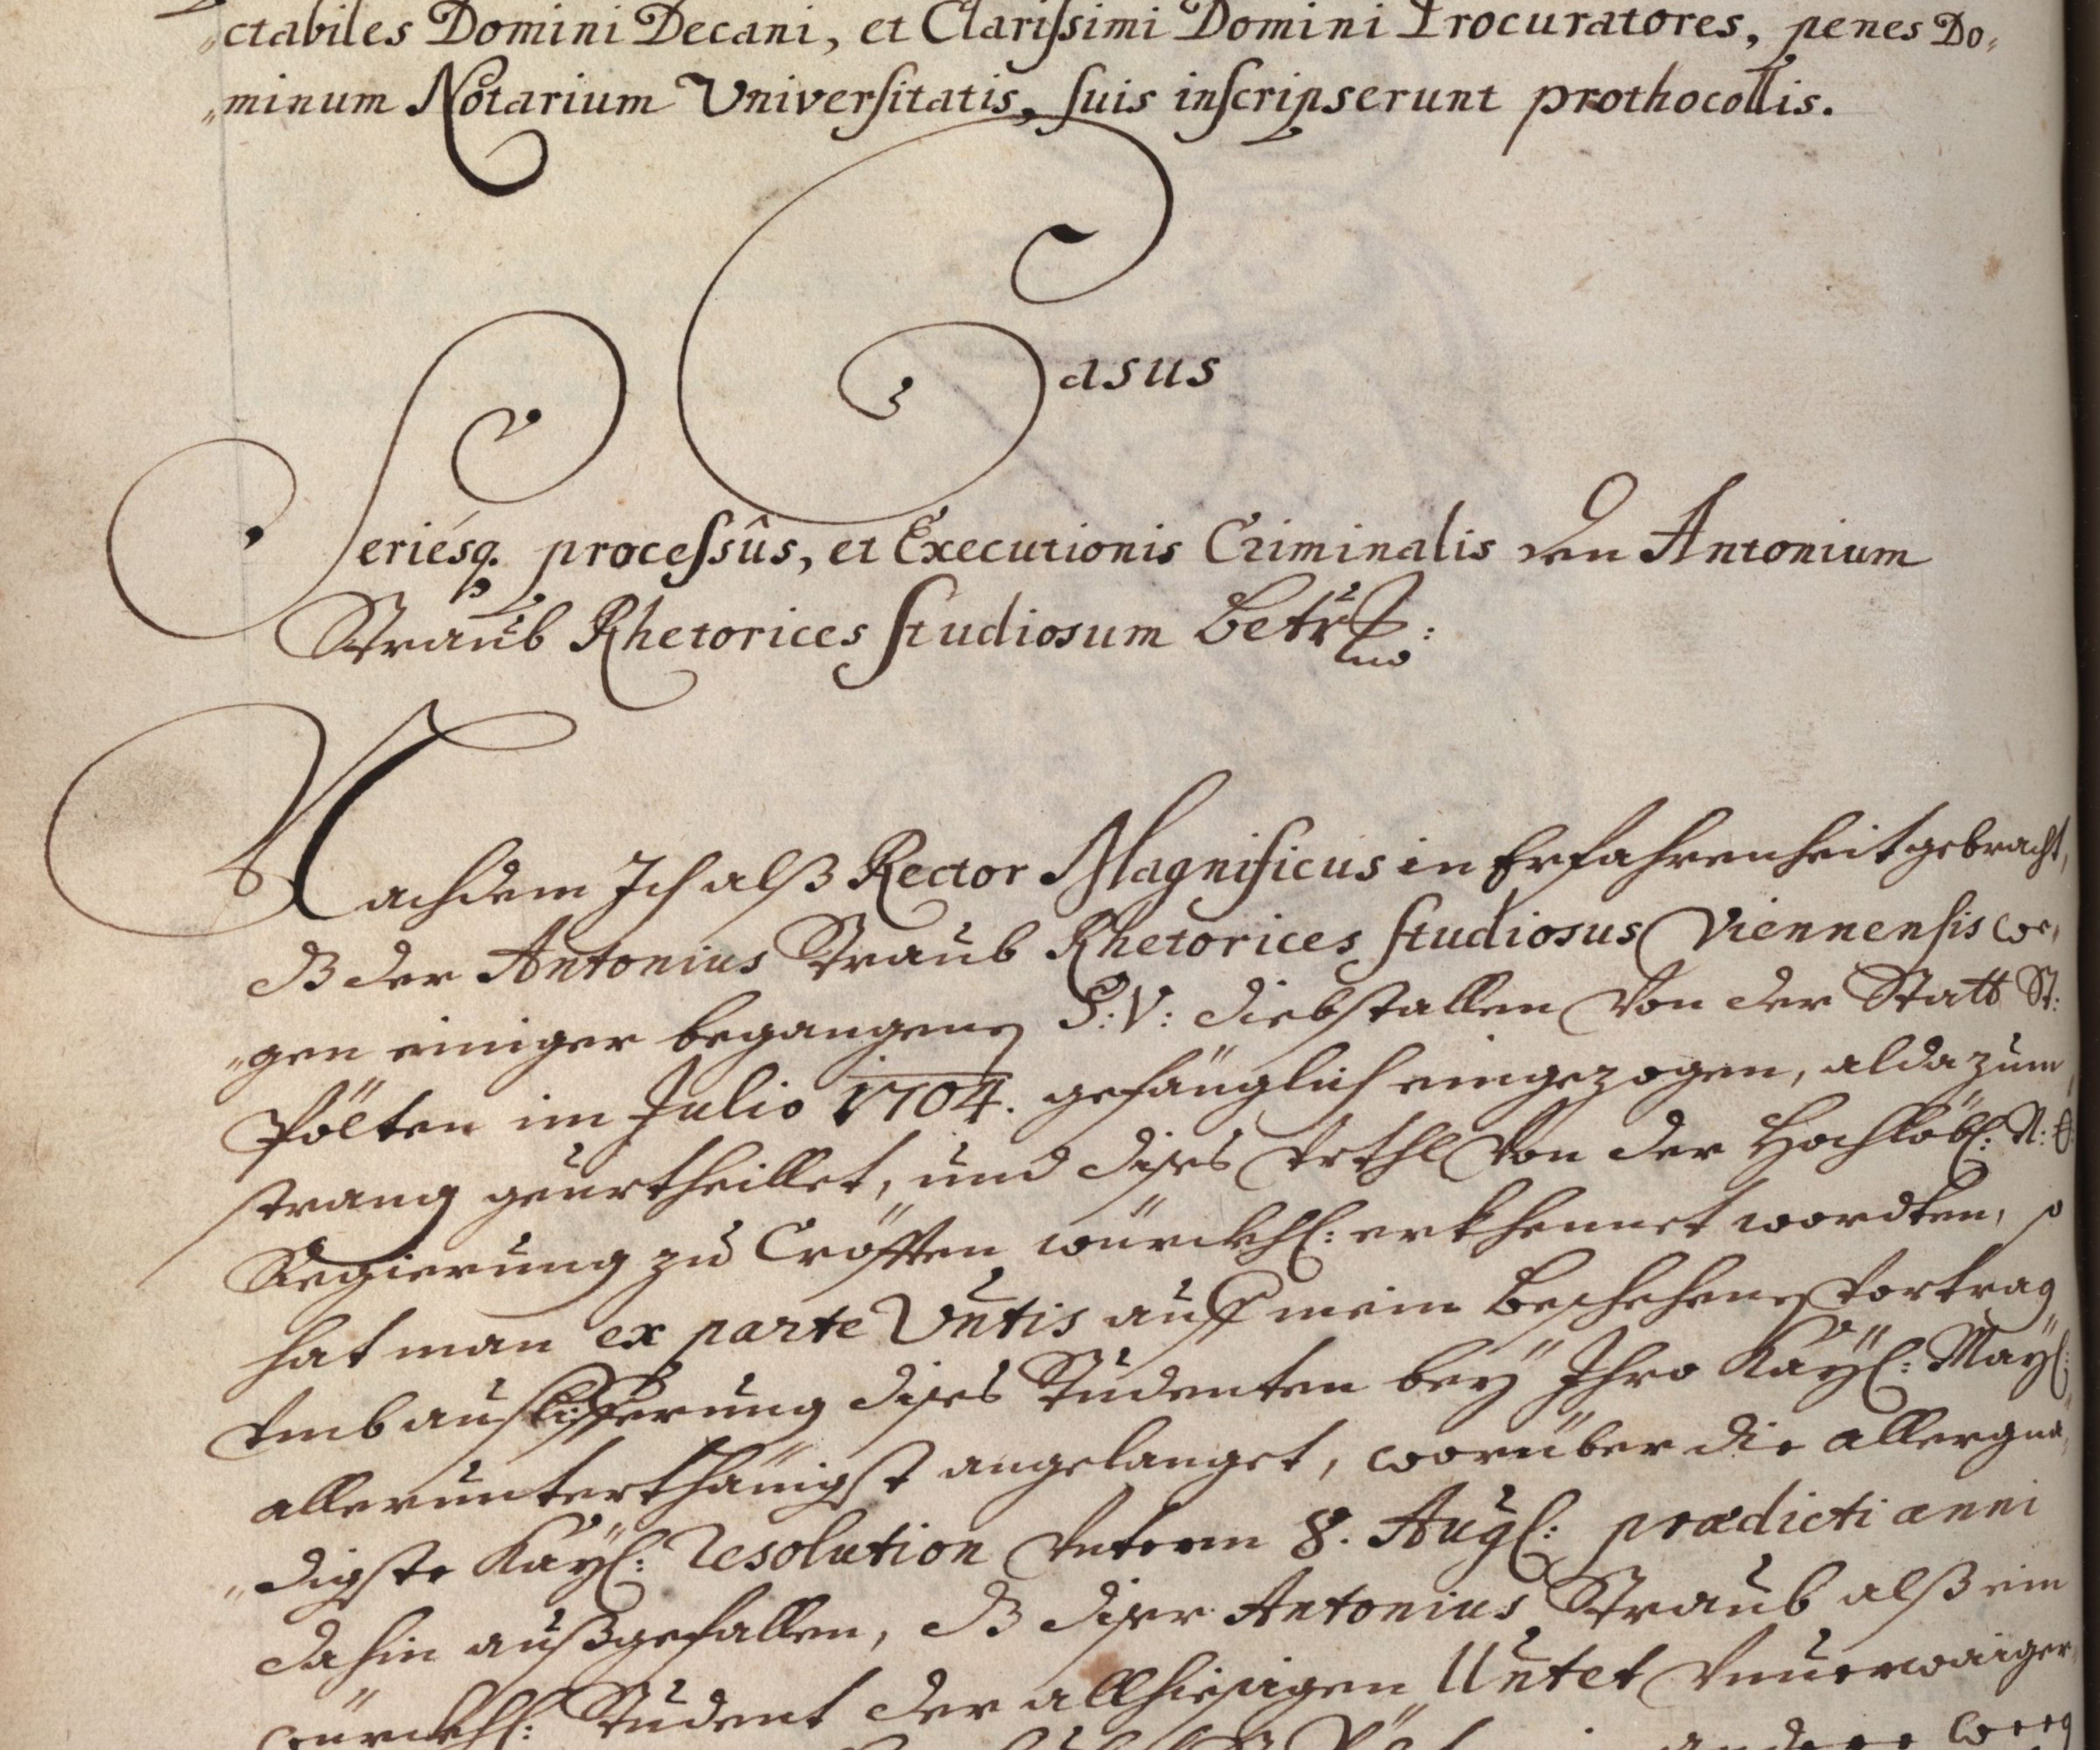 „ctabiles Domini Decani, et Clarissimi Domini Procuratores, penes Do„
„minum Notarium Universitatis, suis inscripserunt prothocollis.
Casus
Seriésq. processûs, et Executionis Criminalis den Antonium
Straub Rhetorices studiosum Betr:
Nachdem Ich alß Rector Magnificus in Erfahrenheit gebracht,
dß der Antonius Straub Rhetorices studiosus Viennensis we„
„gen einiger begangenen S: V: diebstallen von der Statt St:
Pölten im Julio 1704. gefänglich eingezogen, alda zum
strang geurtheillet, und dises Vrthl von der Hochlöbl: N: Ö:
Regierung zu Cräfften würckhl: erkhennet wordten, so
hat man ex parte Vntis auff mein beschehenes Vortrag
vmb auslifferung dises Studenten bey Ihro Kayl: May:
allerunterthänigst angelanget, worüber die allergnä„
„digste Kayl: Resolution vnterm 8. Augl: prædicti anni
dahin außgefallen, dß diser Antonius Straub alß ein
würckhl: Student der allhiesigen Untet